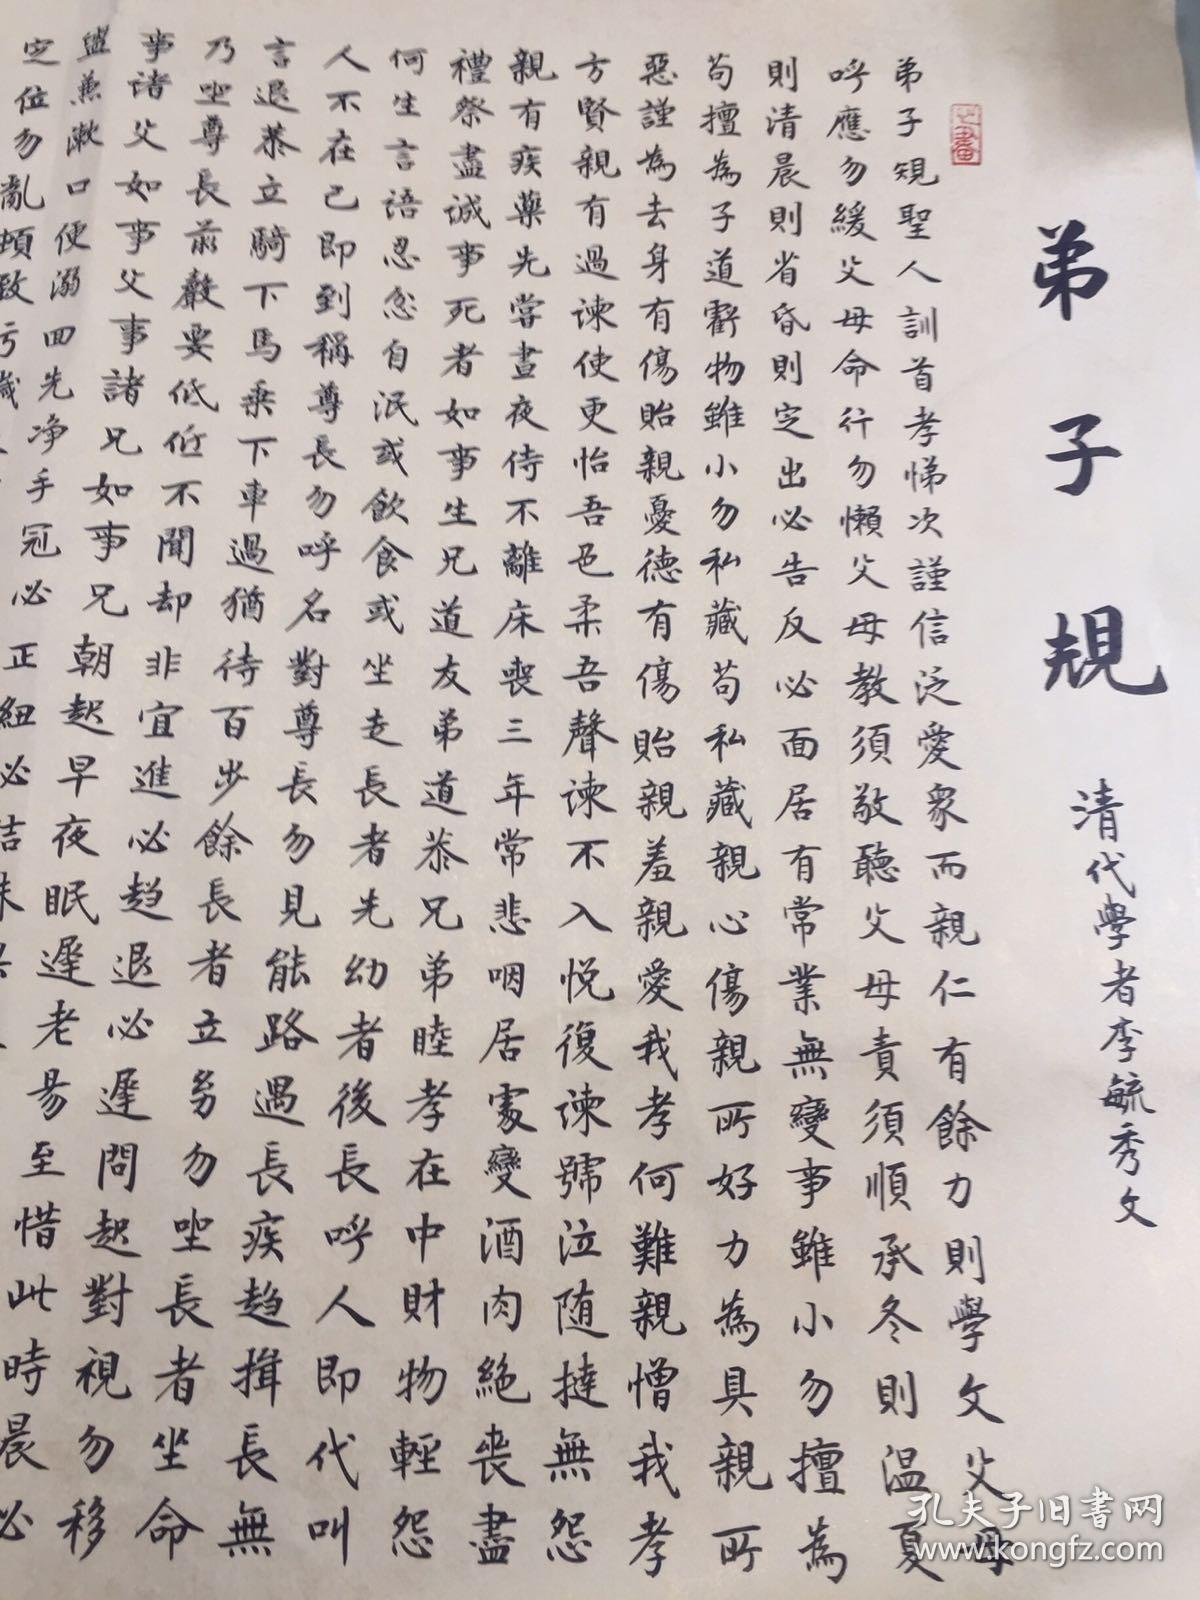 弟子規
清代學者李毓秀文
弟子規聖人訓首孝悌次謹信泛愛衆而親仁有餘力則學文父母
呼應勿緩父母命行勿懶父母教須敬聽父母責須順承冬則温夏
則清晨則省昏則定出必告反必面居有常業無變事雖小勿擅為
苟擅為子道虧物雖小勿私藏苟私藏親心傷親所好力為具親所
惡謹為去身有傷貽親憂德有傷貽親羞親愛我孝何難親憎我孝
方賢親有過諫使更怡吾色柔吾聲諫不入悅復諫號泣随撻無怨
親有疾藥先嘗晝夜侍不離床喪三年常悲咽居處變酒肉絕喪盡
禮祭盡誠事死者如事生兄道友弟道恭兄弟睦孝在中財物輕怨
何生言語忍忿自泯或飲食或坐走長者先幼者後長呼人即代叫
人不在己即到稱尊長勿呼名對尊長勿見能路遇長疾趨揖長無
言退恭立騎下馬乘下車過猶待百步餘長者立幼勿坐長者坐命
乃坐尊長前聲要低低不聞却非宜進必趨退必遲問起對視勿移
事诸父如事父事諸兄如事兄朝起早夜眠遲老易至惜此時晨必
盥兼漱口便溺回先净手冠必正紐必结
定位勿亂頓致污
孔夫子旧書网
www.kongfz.com